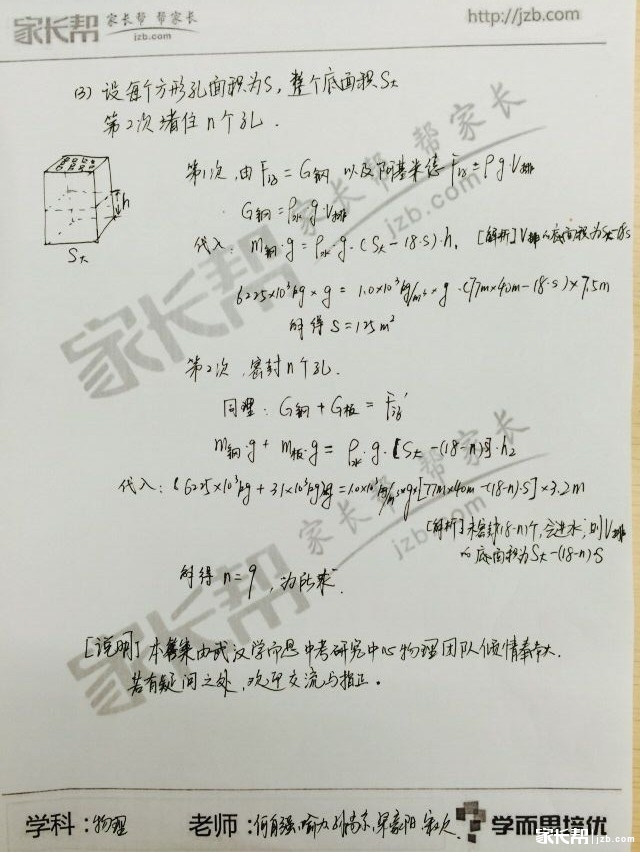 家长帮 家长帮 帮家长
jzb.com
http://jzb.com
(3) 设每个方形孔面积为S, 整个底面积S大
第2次堵住n个孔.
第1次, 由F浮=G钢, 以及阿基米德F浮=ρgV排
G钢=ρ水·g·V排
h
S大
代入: m钢·g=ρ水·g·(S大-18·S)·h, [解析]V排的底面积为S大-18S
6225×10³kg×g=1.0×10³kg/m³×g·(77m×40m-18·S)×7.5m
解得S=125m²
第2次, 密封n个孔.
同理: G钢+G板=F浮'
m钢·g+m板·g=ρ水·g·[S大-(18-n)S]·h₂
代入: (6225×10³kg+31×10³kg)g=1.0×10³kg/m³×g×[77m×40m-(18-n)·S]×3.2m
[解析]未密封(18-n)个, 会进水; 则V排
的底面积为S大-(18-n)·S
解得n=9, 为所求.
[说明]本答案由武汉学而思中考研究中心物理团队倾情奉献.
若有疑问之处, 欢迎交流与指正。
家长帮 帮家长
jzb.com
家长帮 帮家长
jzb.com
学科: 物理 老师: 学而思培优
家长帮 jzb.com